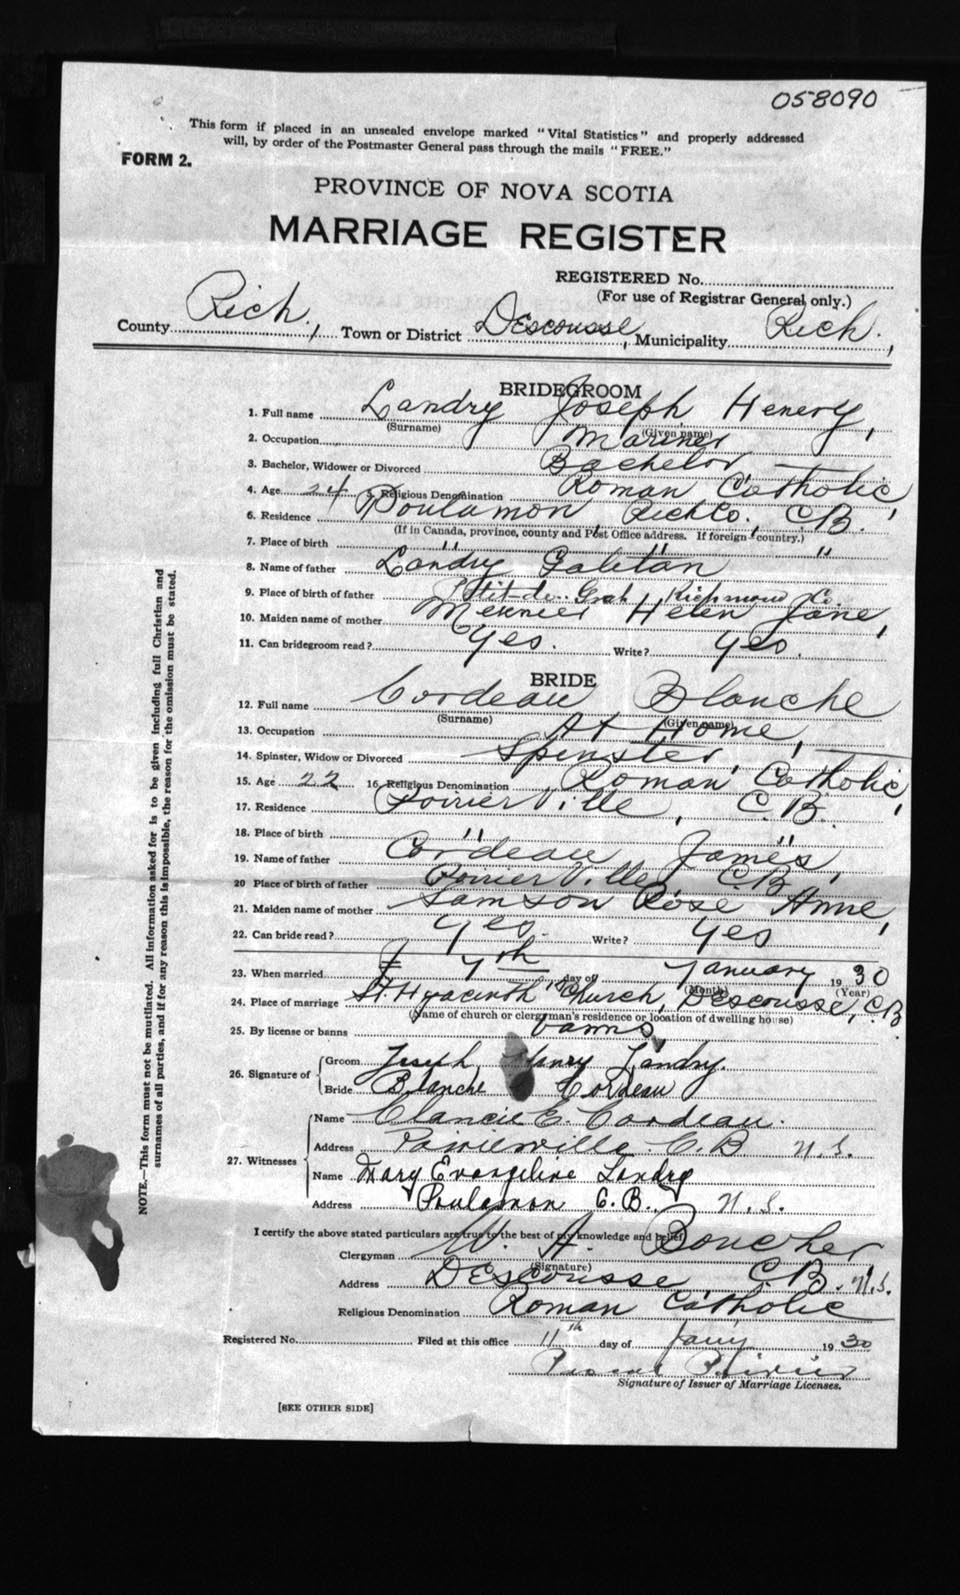 058090
This form if placed in an unsealed envelope marked "Vital Statistics" and properly addressed
will, by order of the Postmaster General pass through the mails "FREE."
FORM 2.
PROVINCE OF NOVA SCOTIA
MARRIAGE REGISTER
REGISTERED No.
(For use of Registrar General only.)
County Rich., Town or District Descousse, Municipality Rich.,
BRIDEGROOM
1. Full name Landry Joseph Henery,
(Surname) (Given name)
2. Occupation Mariner
3. Bachelor, Widower or Divorced Bachelor,
4. Age 24 5. Religious Denomination Roman Catholic,
6. Residence Poulamon, Rich Co., C.B.
(If in Canada, province, county and Post Office address. If foreign country.)
7. Place of birth " " "
8. Name of father Landry
9. Place of birth of father Richmond Co.
10. Maiden name of mother Helen Jane,
11. Can bridegroom read? Yes. Write? Yes.
BRIDE
12. Full name Cordeau Blanche
(Surname) (Given name)
13. Occupation At Home,
14. Spinster, Widow or Divorced Spinster,
15. Age 22 16. Religious Denomination Roman Catholic,
17. Residence Poirier Ville, C.B.
18. Place of birth " "
19. Name of father Cordeau James,
20 Place of birth of father Poirier Ville, C.B.
21. Maiden name of mother Samson Rose Anne,
22. Can bride read? Yes. Write? Yes
23. When married 7th day of January 1930
(Month) (Year)
24. Place of marriage St. Hyacinth Church, Descousse, C.B.
(Name of church or clergyman's residence or location of dwelling house)
25. By license or banns banns
26. Signature of Groom Joseph Henry Landry.
Bride Blanche Cordeau
27. Witnesses Name E. Cordeau.
Address Poirierville C.B. N.S.
Name Mary Evangeline Landry
Address Poulamon C.B., N.S.
I certify the above stated particulars are true to the best of my knowledge and belief
Clergyman W. A. Boucher
(Signature)
Address Descousse C.B. N.S.
Religious Denomination Roman Catholic
Registered No. Filed at this office 11th day of Jany 1930
Poirier
Signature of Issuer of Marriage Licenses.
[SEE OTHER SIDE]
NOTE.—This form must not be mutilated. All information asked for is to be given including full Christian and
surnames of all parties, and if for any reason this is impossible, the reason for the omission must be stated.